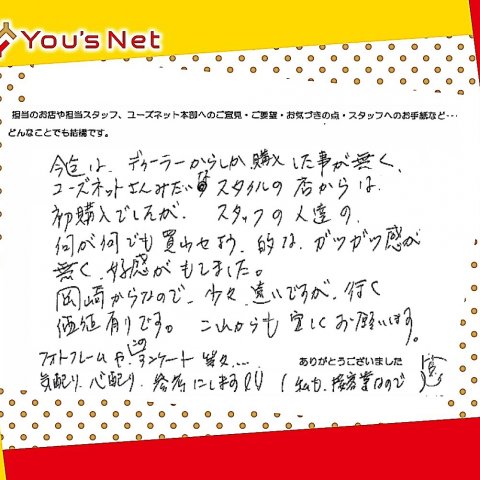 You's Net
担当のお店や担当スタッフ、ユーズネット本部へのご意見・ご要望・お気づきの点・スタッフへのお手紙など…
どんなことでも結構です。
今迄は、ディーラーからしか購入した事が無く、
ユーズネットさんみたいなスタイルの店からは
初購入でしたが、スタッフの人達の、
何が何でも買わせよう、的な、ガツガツ感が
無く、好感がもてました。
岡崎からなので、少々、遠いですが、行く
価値有りです。これからも宜しくお願います。
フォトフレームや、このアンケート等々…
ありがとうございました
気配り、心配り、参考にします!!（私も、接客業なので）